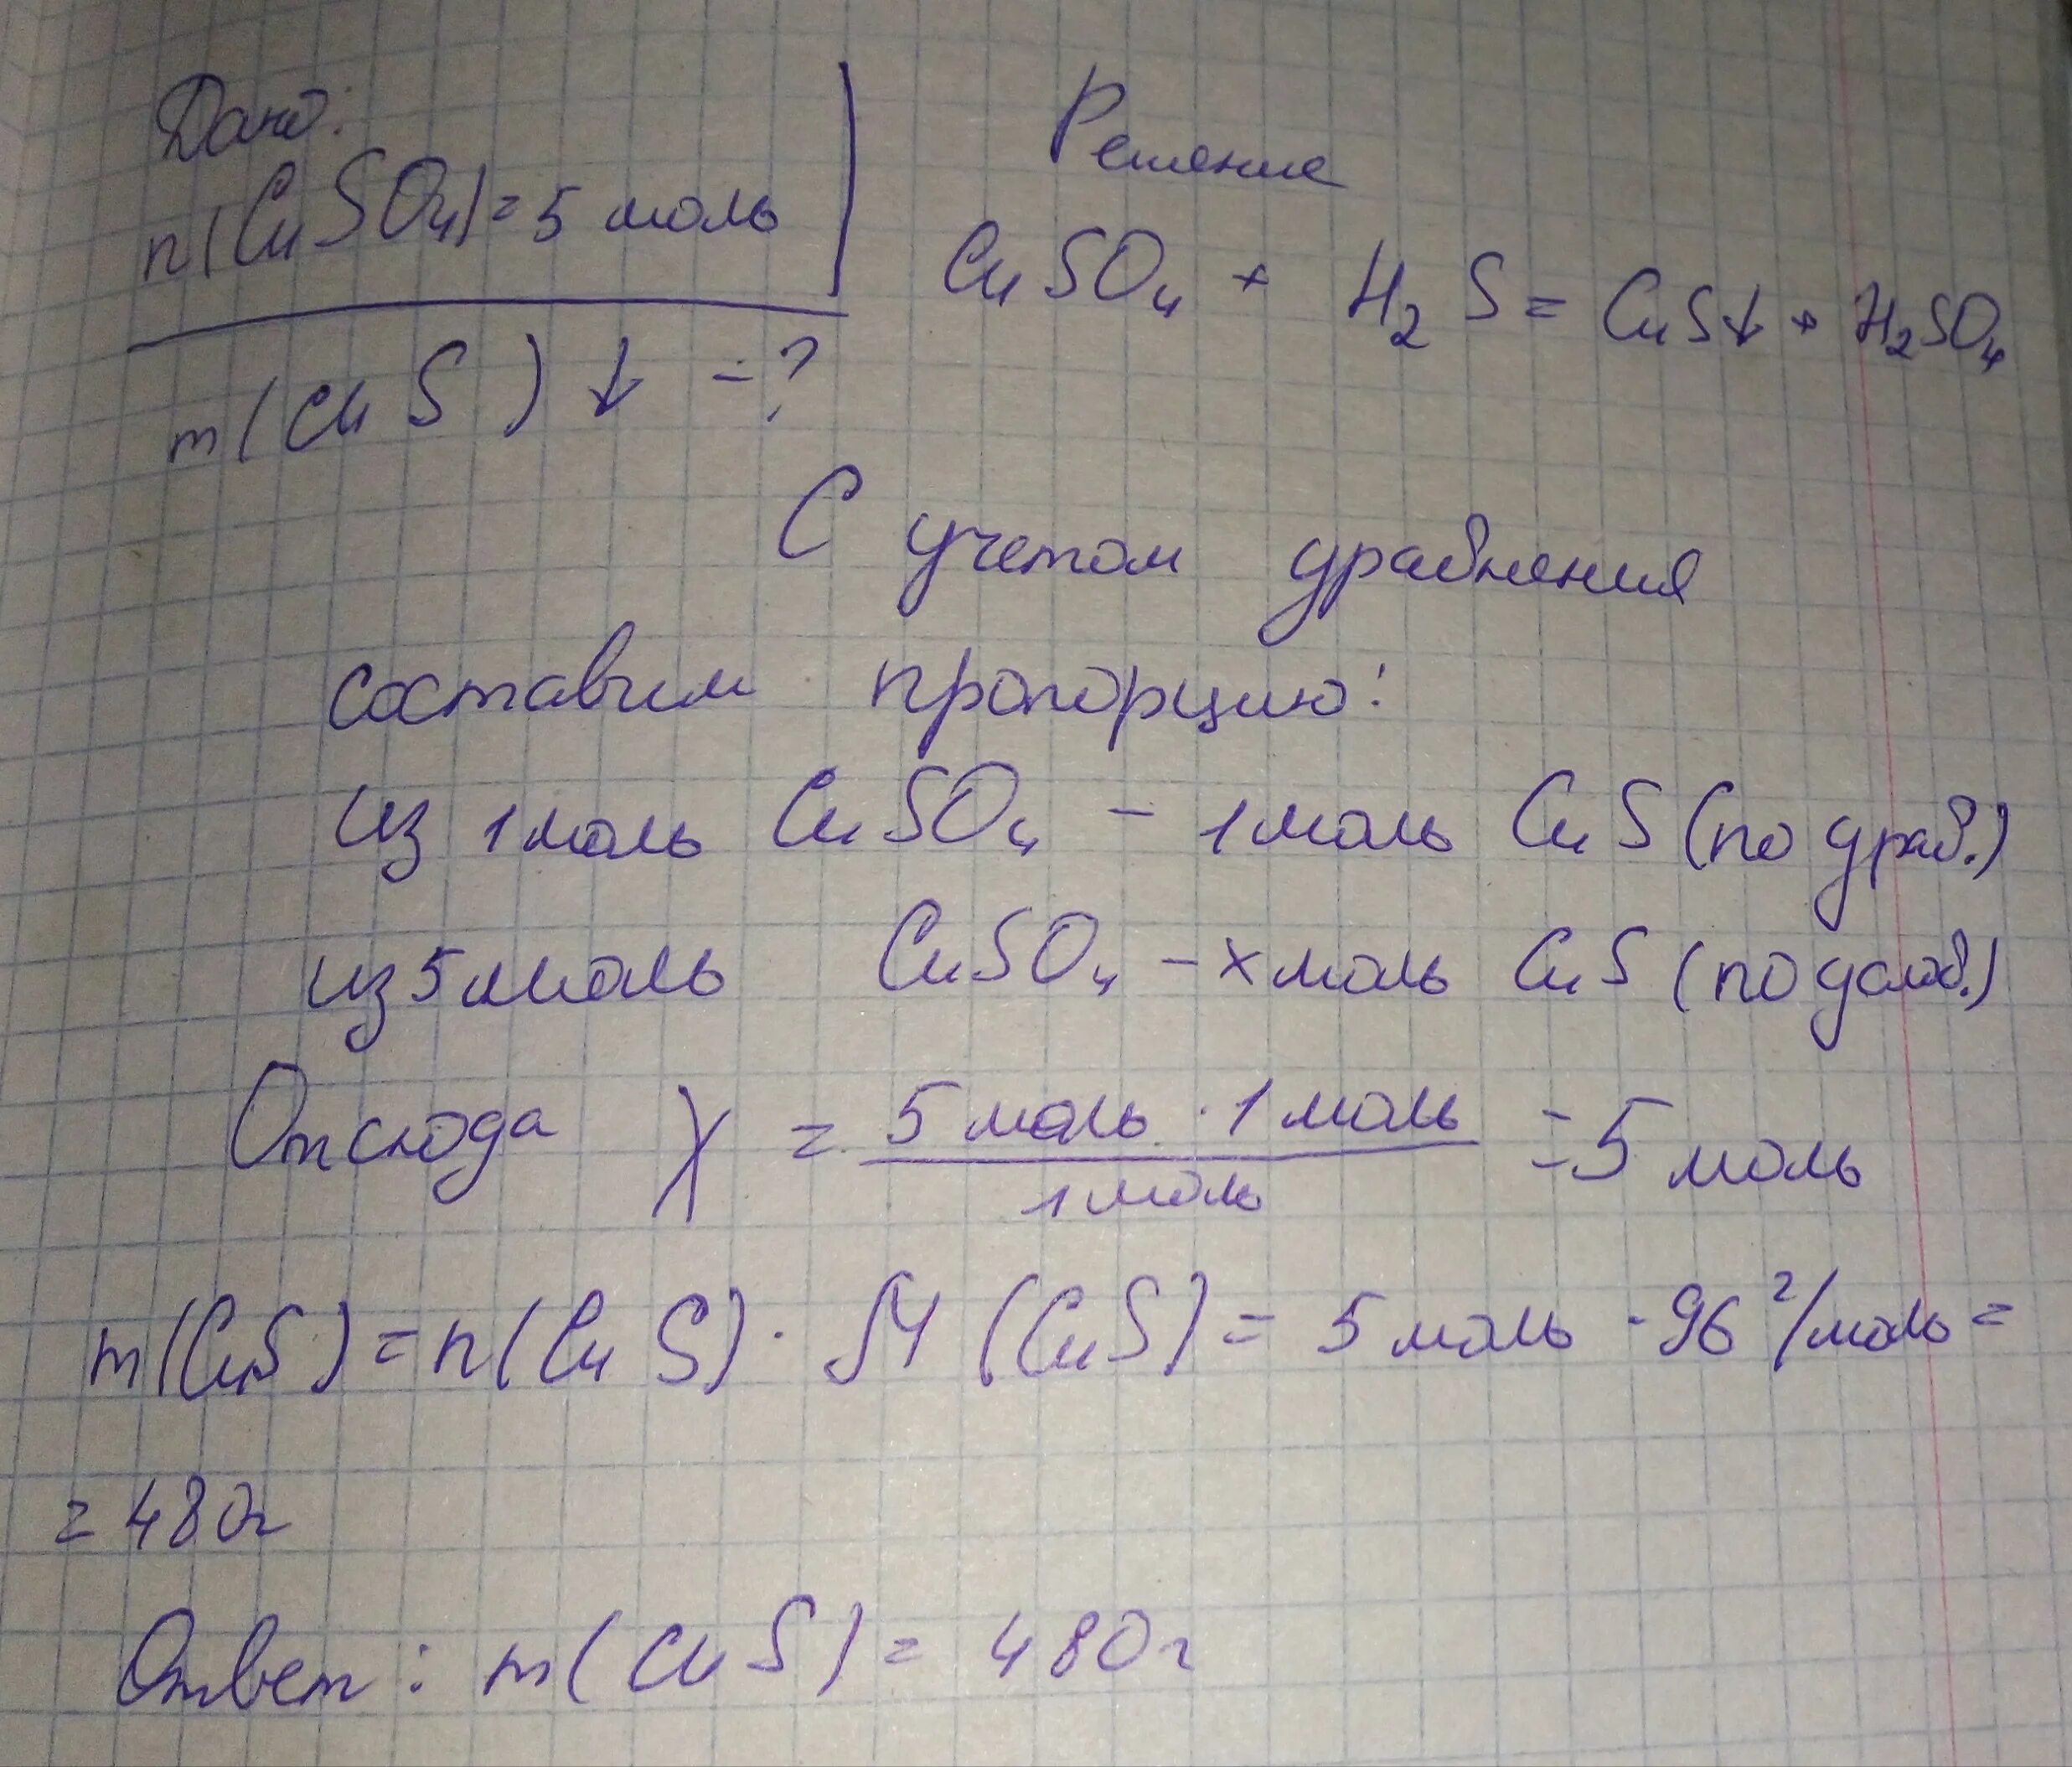 Дано:
n(CuSO₄)=5 моль
m(CuS)↓ -?
Решение
CuSO₄ + H₂S = CuS↓ + H₂SO₄
С учетом уравнения
составим пропорцию:
из 1 моль CuSO₄ - 1 моль CuS (по урав.)
из 5 моль CuSO₄ - x моль CuS (по услов.)
Отсюда X = 5 моль · 1 моль / 1 моль = 5 моль
m(CuS) = n(CuS) · M (CuS) = 5 моль · 96 г/моль =
= 480г
Ответ: m(CuS) = 480г